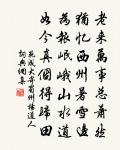 老來萬事總蕭然
猶憶西州暑雪
為報岷峨山水道
如今真個得歸田
范成大寄蜀州楊道人
詞典網集